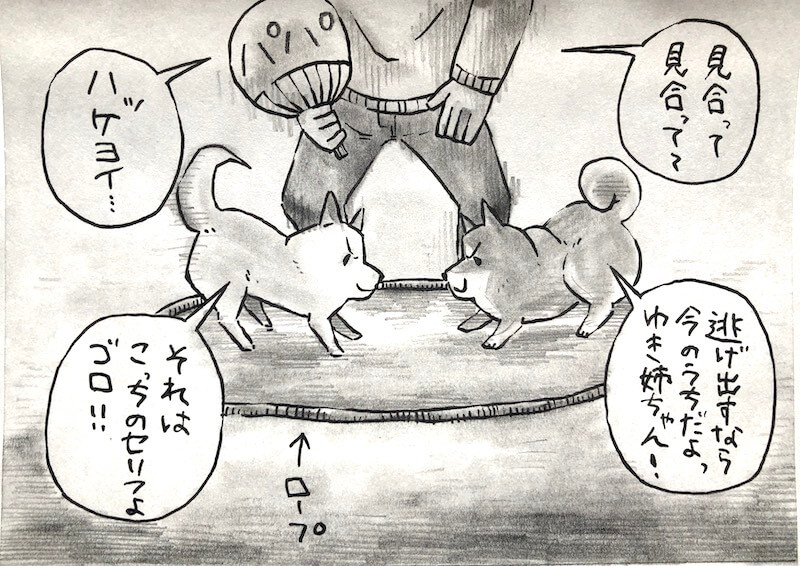 見合って
見合って〜
ハッケヨイ…
逃げ出すなら
今のうちだよっ
ゆき姉ちゃん!
それは
こっちのセリフよ
ゴロ!!
↑ロープ